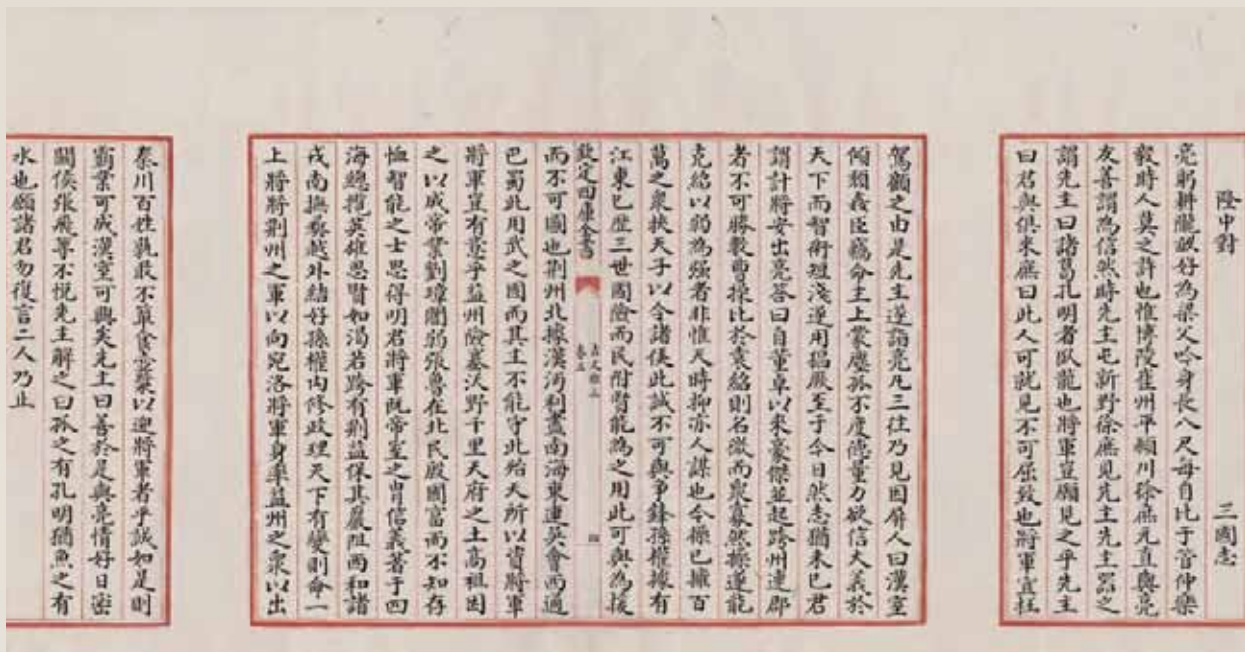 隆中對 三國志
亮躬耕隴畝好為梁父吟身長八尺每自比于管仲樂
毅時人莫之許也惟博陵崔州平潁川徐庶元直與亮
友善謂為信然時先主屯新野徐庶見先主先主器之
謂先主曰諸葛孔明者臥龍也將軍豈願見之乎先主
曰君與俱來庶曰此人可就見不可屈致也將軍宜枉
駕顧之由是先主遂詣亮凡三往乃見因屏人曰漢室
傾頹姦臣竊命主上蒙塵孤不度德量力欲信大義於
天下而智術短淺遂用猖蹶至于今日然志猶未已君
謂計將安出亮答曰自董卓以來豪傑並起跨州連郡
者不可勝數曹操比於袁紹則名微而衆寡然操遂能
克紹以弱為强者非惟天時抑亦人謀也今操已擁百
萬之衆挾天子以令諸侯此誠不可與爭鋒孫權據有
江東已歷三世國險而民附賢能為之用此可與為援
欽定四庫全書
古文雅正
卷五
四
而不可圖也荆州北據漢沔利盡南海東連吳會西通
巴蜀此用武之國而其主不能守此殆天所以資將軍
將軍豈有意乎益州險塞沃野千里天府之土高祖因
之以成帝業劉璋闇弱張魯在北民殷國富而不知存
恤智能之士思得明君將軍既帝室之胄信義著于四
海總攬英雄思賢如渴若跨有荆益保其巖阻西和諸
戎南撫夷越外結好孫權内修政理天下有變則命一
上將將荆州之軍以向宛洛將軍身率益州之衆以出
秦川百姓孰敢不簞食壺漿以迎將軍者乎誠如是則
霸業可成漢室可興矣先主曰善於是與亮情好日密
關侯張飛等不悦先主解之曰孤之有孔明猶魚之有
水也願諸君勿復言二人乃止